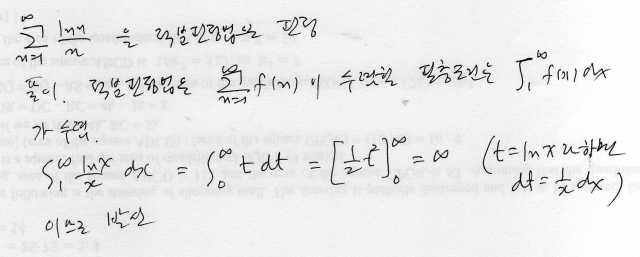 ∞∑n=1 lnn/n 을 적분판정법으로 판정
풀이. 적분판정법은 ∞∑n=1 f(n) 이 수렴할 필충조건은 ∫₁^∞ f(x) dx
가 수렴.
∫₁^∞ lnx/x dx = ∫₀^∞ t dt = [½t²]₀^∞ = ∞ (t = ln x 라 하면
dt = 1/x dx)
이므로 발산